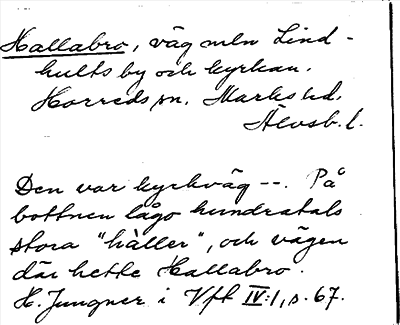 Hallabro, väg mln Lind-
hults by och kyrkan.
Horreds sn. Marks hd.
Älvsb. l.
Den var kyrkväg --. På
bottnen lågo hundratals
stora "häller", och vägen
där hette Hallabro.
H. Jungner i Vft IV:1, s. 67.